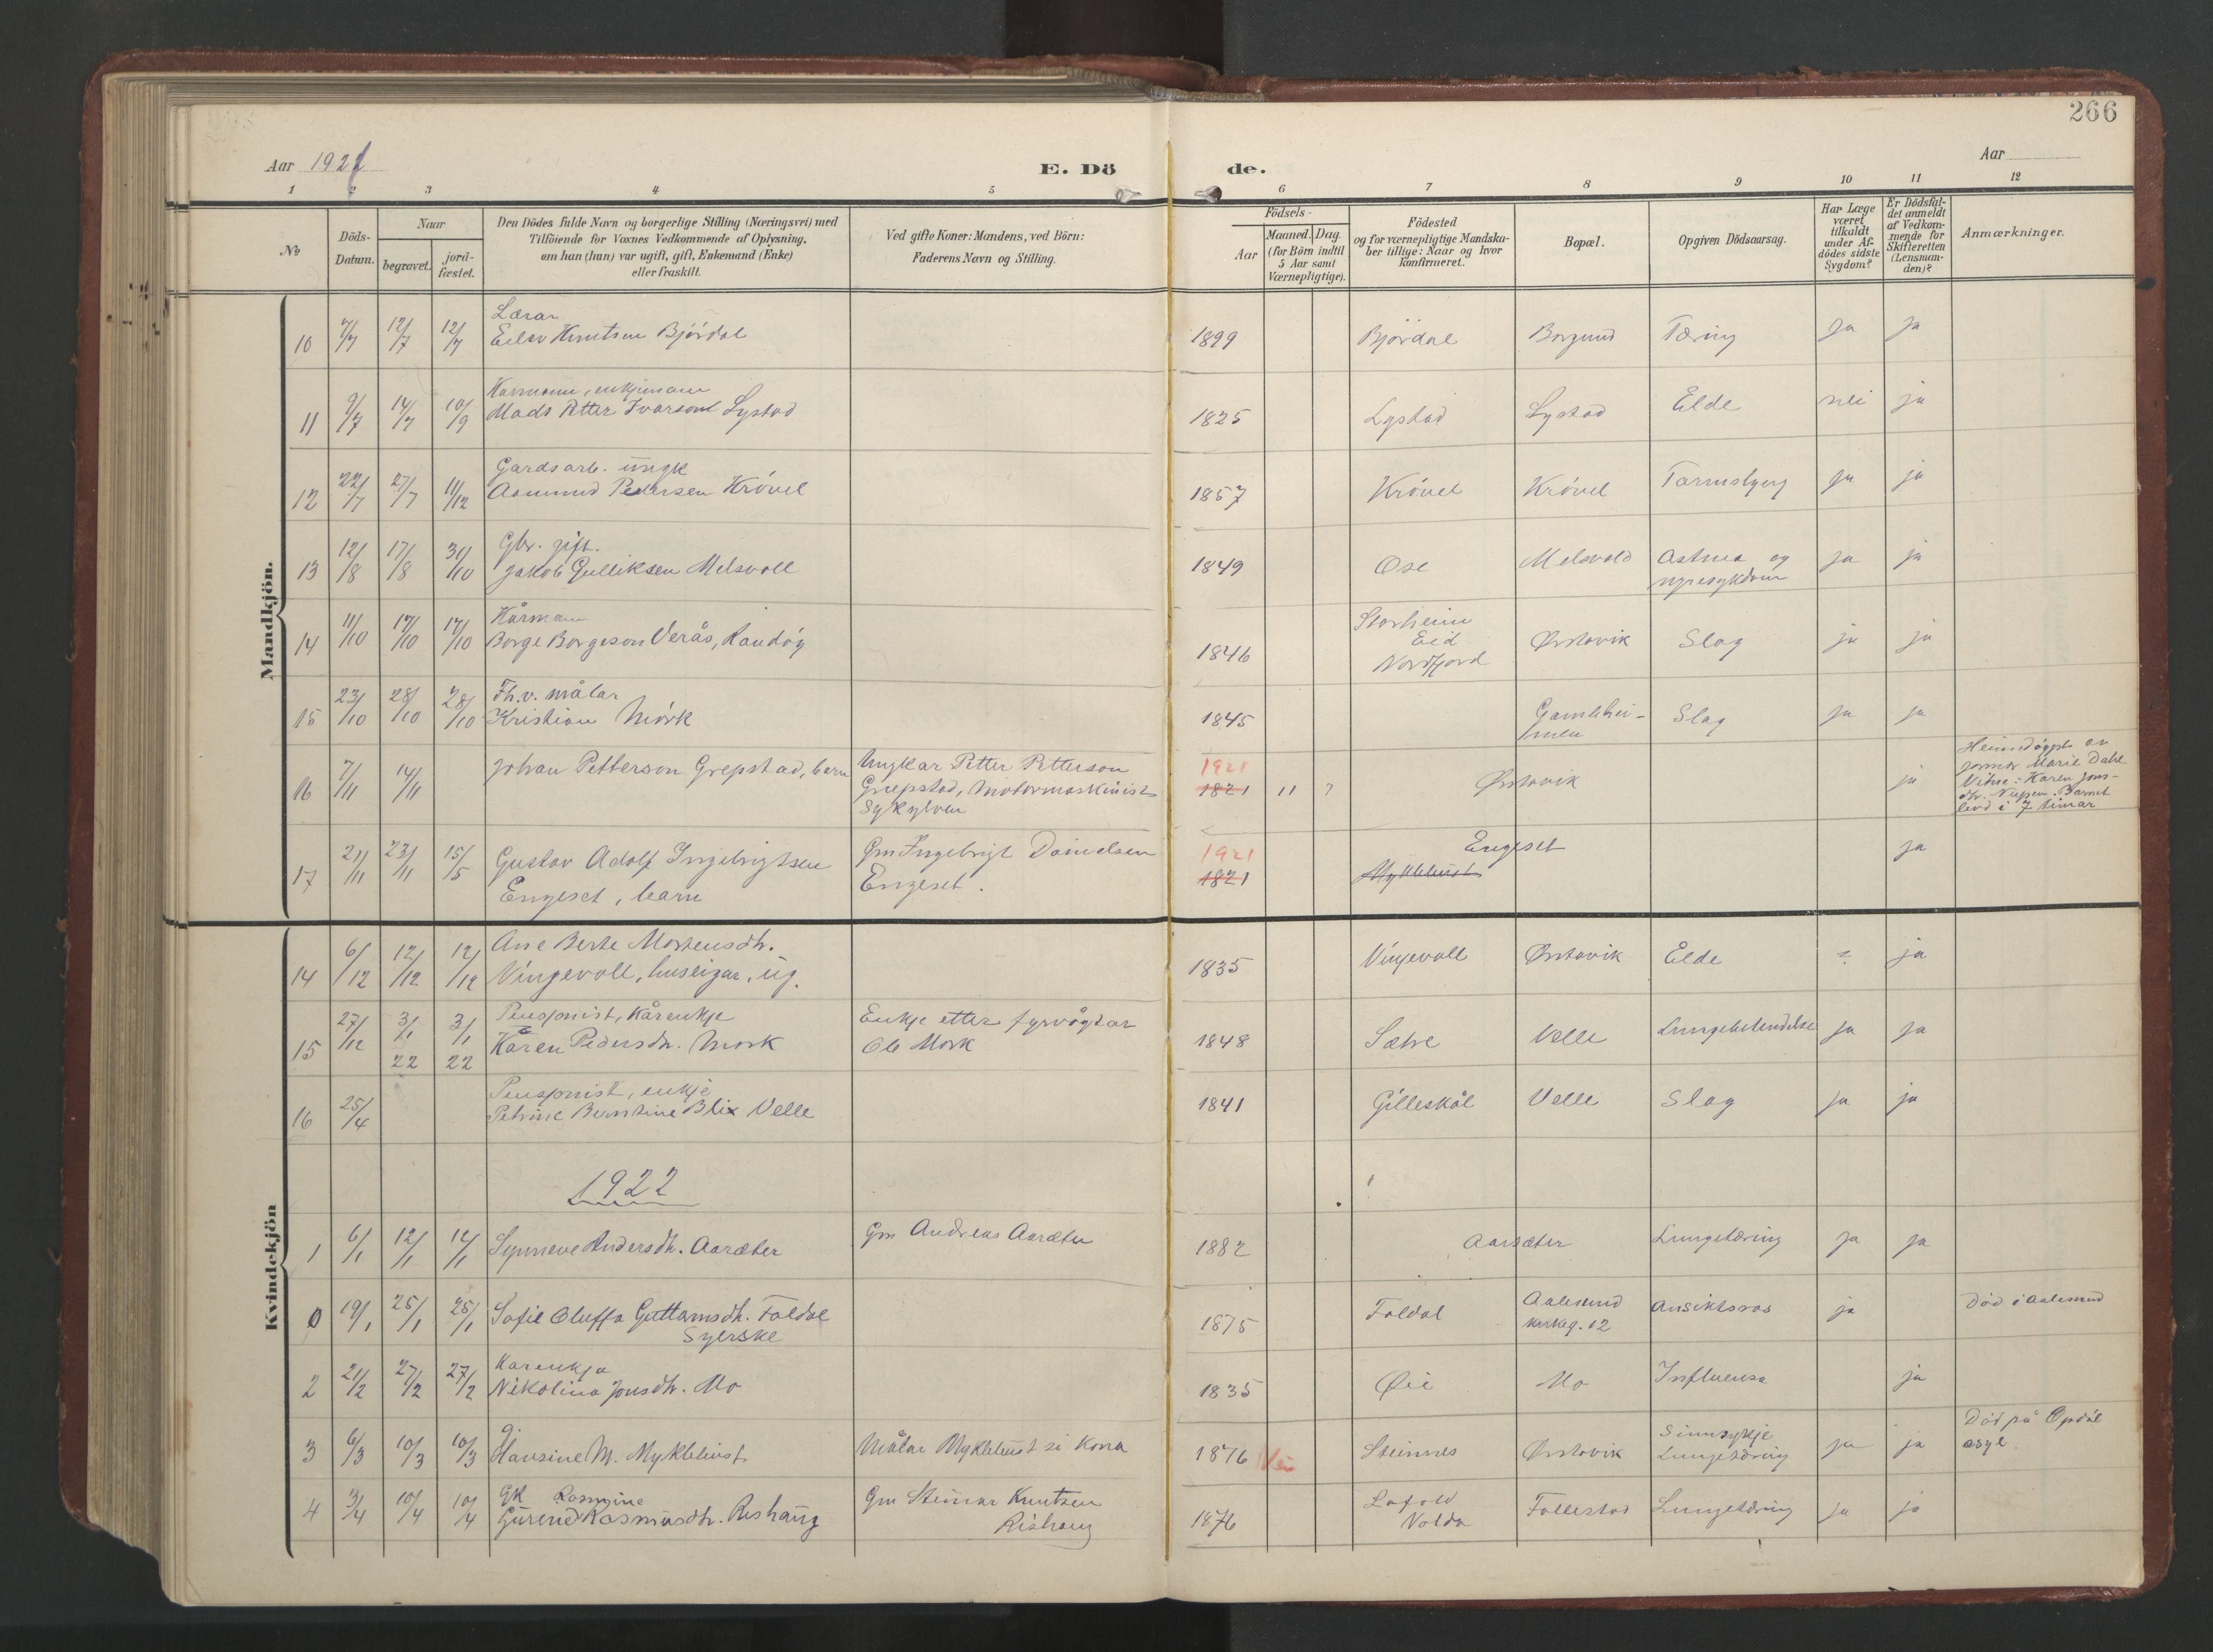 266
Aar 1921
E. Dö de.
Aar
1 2 3 4 5 6 7 8 9 10 11 12
No
Döds-Datum.
Naar
begravet.
jord-fæstet.
Den Dödes fulde Navn og borgerlige Stilling (Næringsvei) med
Tilföiende for Voxnes Vedkommende af Oplysning,
om han (hun) var ugift, gift, Enkemand (Enke)
eller fraskilt.
Ved gifte Koner: Mandens, ved Börn:
Faderens Navn og Stilling.
Födsels-
Aar
Maaned. Dag.
(for Börn indtil
5 Aar samt
Værnepligtige).
Födested
og for værnepligtige Mandska-
ber tillige: Naar og hvor
konfirmeret.
Bopæl.
Opgiven Dödsaarsag.
Har Læge
været
tilkaldt
under Af-
dödes sidste
Sygdom?
Er Dödsfal-
det anmeldt
af Vedkom-
mende for
Skifteretten
(Lensman-
den)?
Anmærkninger.
Mandkjön.
Lærar
10 7/7 12/7 12/7 Eilev Knutsen Bjørdal 1899 Bjørdal Borgund Tæring ja ja
Kårmann, enkjemann
11 9/7 14/7 10/9 Mads Petter Ivarson Lystad 1825 Lystad Lystad Elde nei ja
Gardsarb. ungk
12 22/7 27/7 11/12 Asmund Pedersen Krövel 1857 Krövel Krövel Tarmslyng ja ja
Gbr. gift.
13 12/8 17/8 30/10 Jakob Gulliksen Melsvoll 1849 Ose Melsvold Astma og
nyresykdom ja ja
Kårmann
14 11/10 17/10 17/10 Borge Borgeson Verås, Raudøy 1846 Storheim
Eid
Nordfjord Ørstavik Slag ja ja
Fh.v. målar
15 23/10 28/10 28/10 Kristian Mørk 1845 Gamlehei-
men Slag ja ja
16 7/11 14/11 Johan Petterson Grepstad, barn Ungkar Petter Petterson
Grepstad, Motormaskinist
Sykylven 1921
1821 11 7 Ørstavik ja Heimedøypt av
jormor Marie Dahl
Vitne: Karen Jons-
dtr. Nupen. Barnet
levd i 7 timar
17 21/11 23/11 15/5 Gustav Adolf Ingebrigtsen
Engeset, barn Gm Ingebrigt Danielsen
Engeset. 1921
1821 Engeset
Myklebust ja
Kvindekjön
14 6/12 12/12 12/12 Ane Berte Mortensdtr.
Vingevoll, huseigar, ug. 1835 Vingevoll Ørstavik Elde ? ja
Pensjonist, Kårenkje
15 27/12 3/1 22 3/1 22 Karen Pedersdtr. Mork Enkje etter fyrvågtar
Ole Mork 1848 Sætre Velle Lungebetendelse ja ja
Pensjonist, enkje
16 25/4 Petrine Berntine Blix Velle 1841 Gilleskål Velle Slag ja ja
1922
1 6/1 12/1 12/1 Synneve Andersdtr. Aarseter Gm Andreas Aarseter 1882 Aarsæter Lungetæring ja ja
0 19/1 25/1 25/1 Sofie Oluffa Guttormsdtr. Foldal
Syerske 1875 Foldal Aalesund
kirkeg. 12 Ansiktsros ja Död i Aalesund
Kårenkja
2 21/2 27/2 27/2 Nikolina Jonsdtr. Mo 1835 Øie Mo Influensa ja
g.
3 6/3 10/3 10/3 Hansine M. Myklebust Målar Myklebust si Kona 1876 Steinnes Ørstavik Sinnsykje
Lungetæring ja ja Död på Opdöl
asyl.
Gk Rasmine
4 3/4 10/4 10/4 Gurine Rasmusdtr. Rishaug Gm Steinar Knutsen
Rishaug 1876 Volda Follestad Lungetæring ja ja